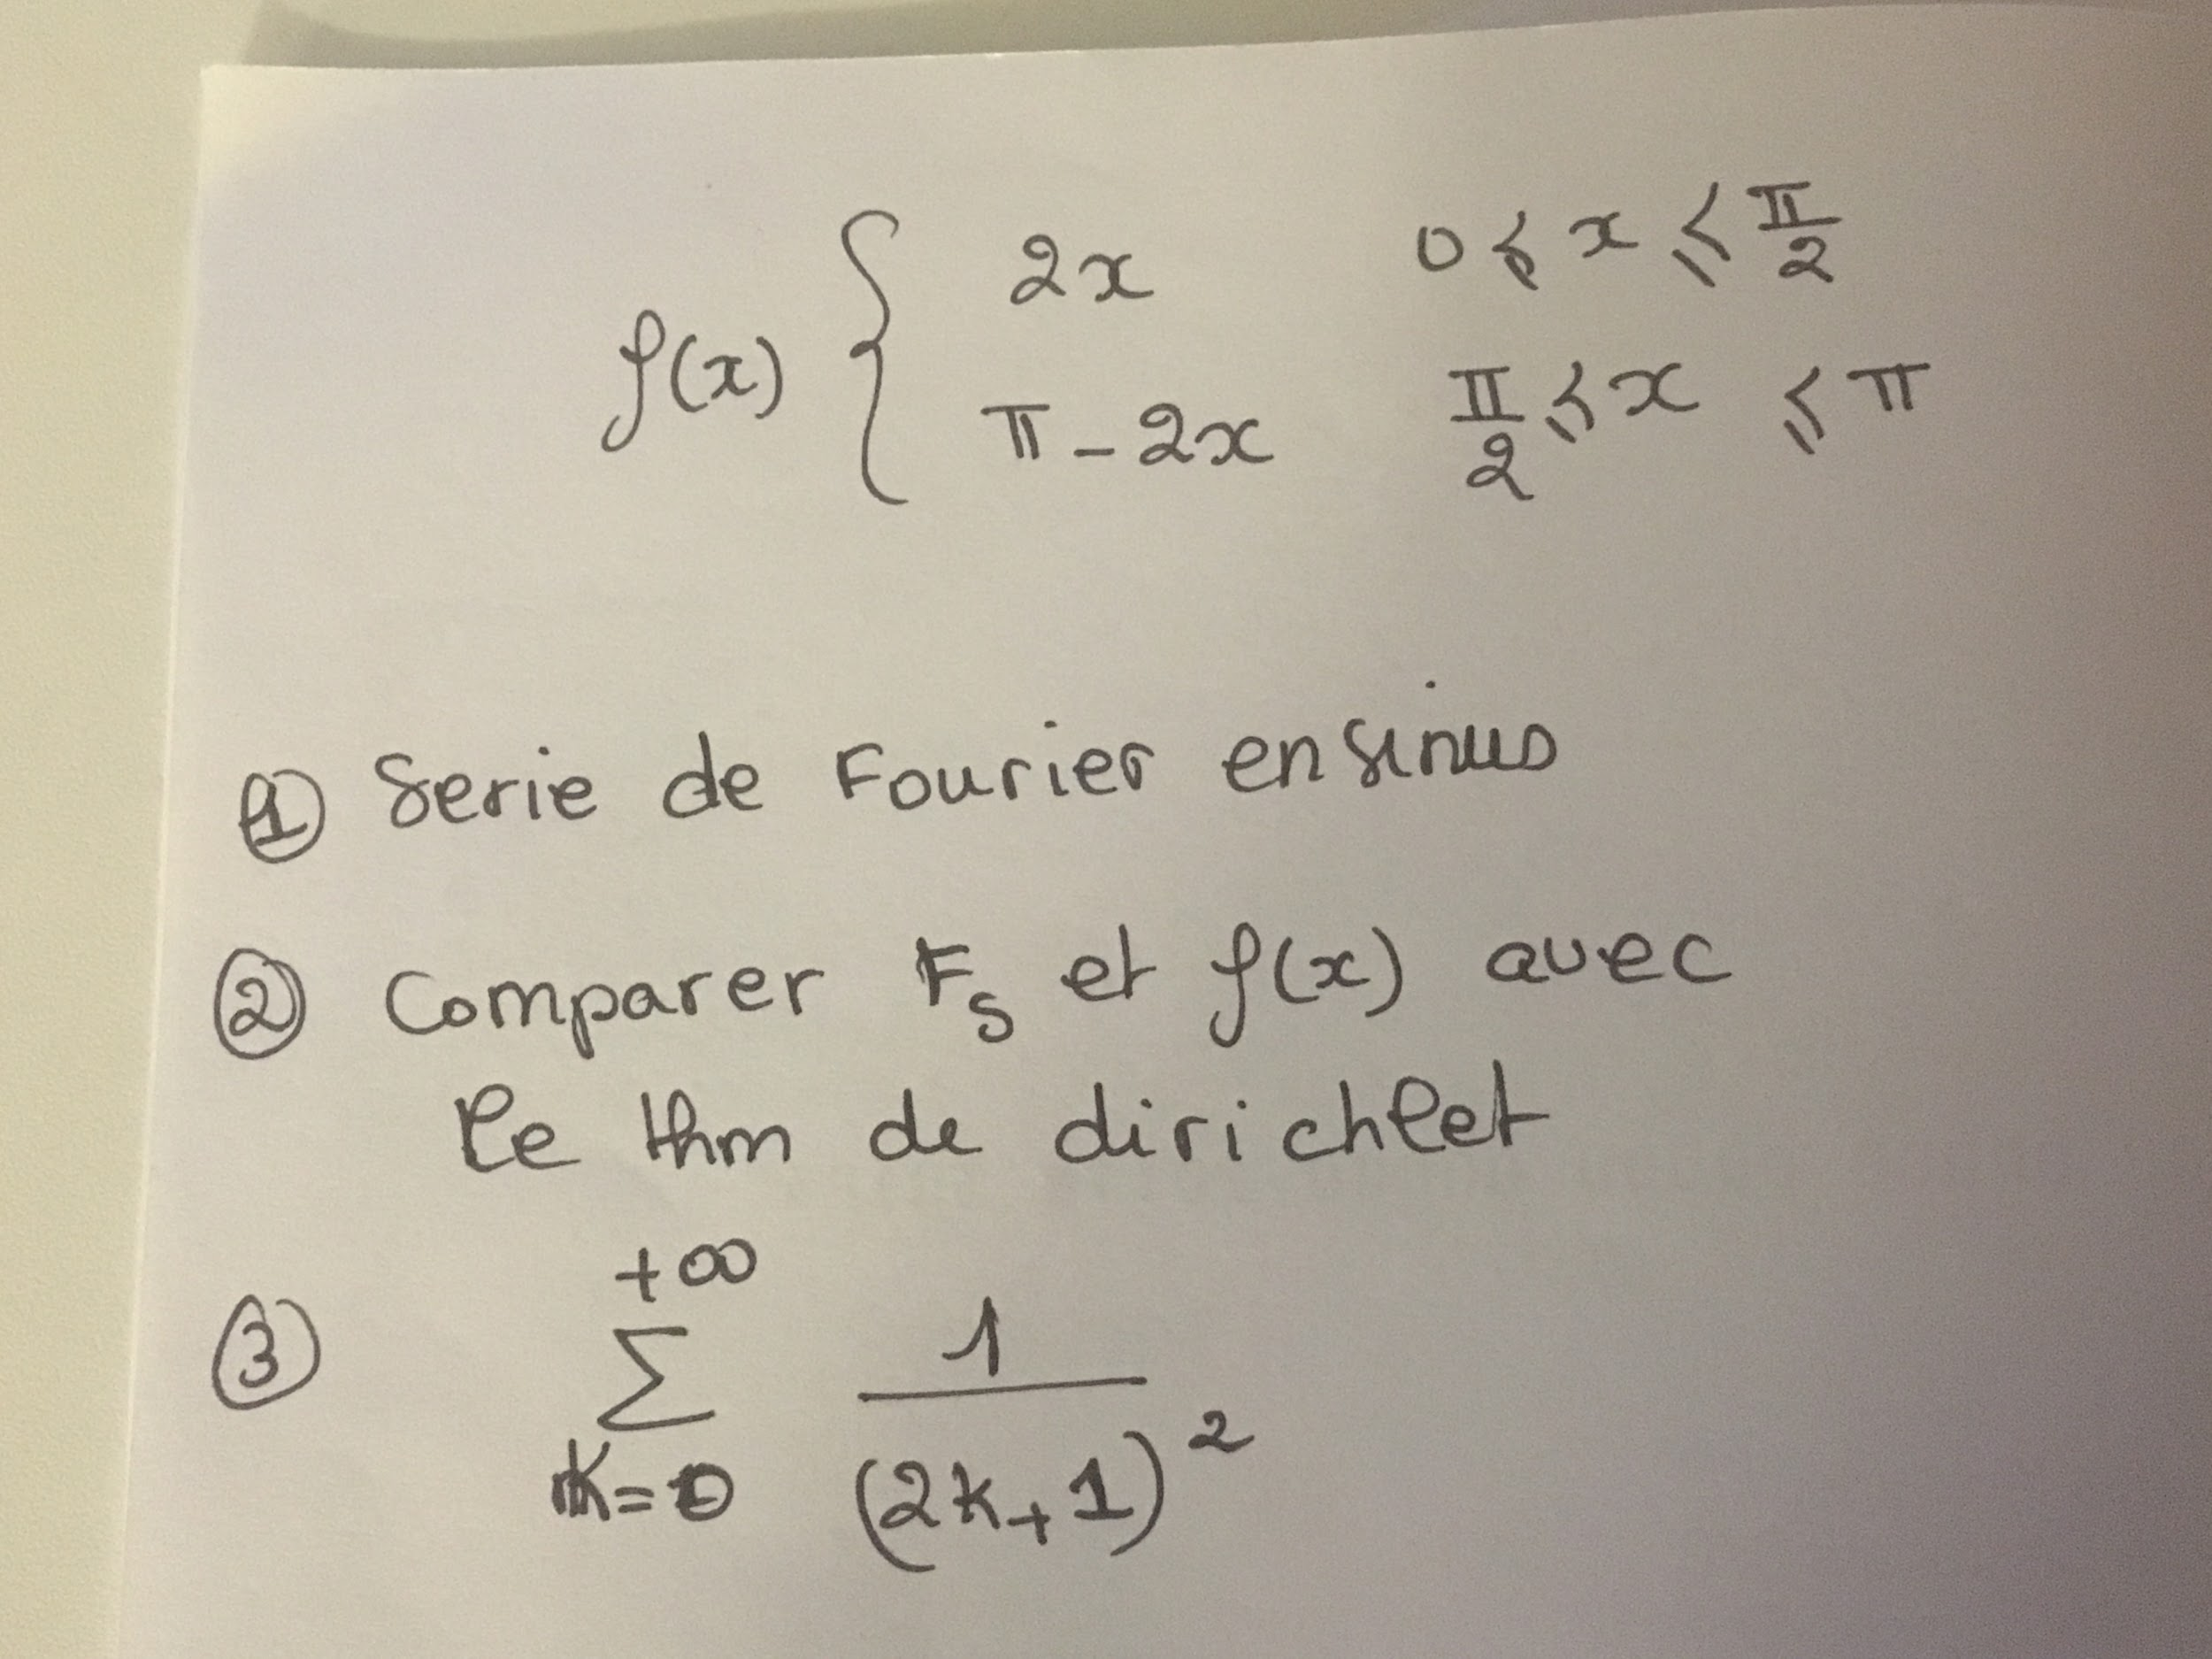 f(x) { 2x 0 ⩽ x ⩽ π/2
π - 2x π/2 ⩽ x ⩽ π
① Serie de Fourier en sinus
② Comparer F_s et f(x) avec
le thm de dirichlet
③ +∞ ∑ K=0 1/(2k+1)²